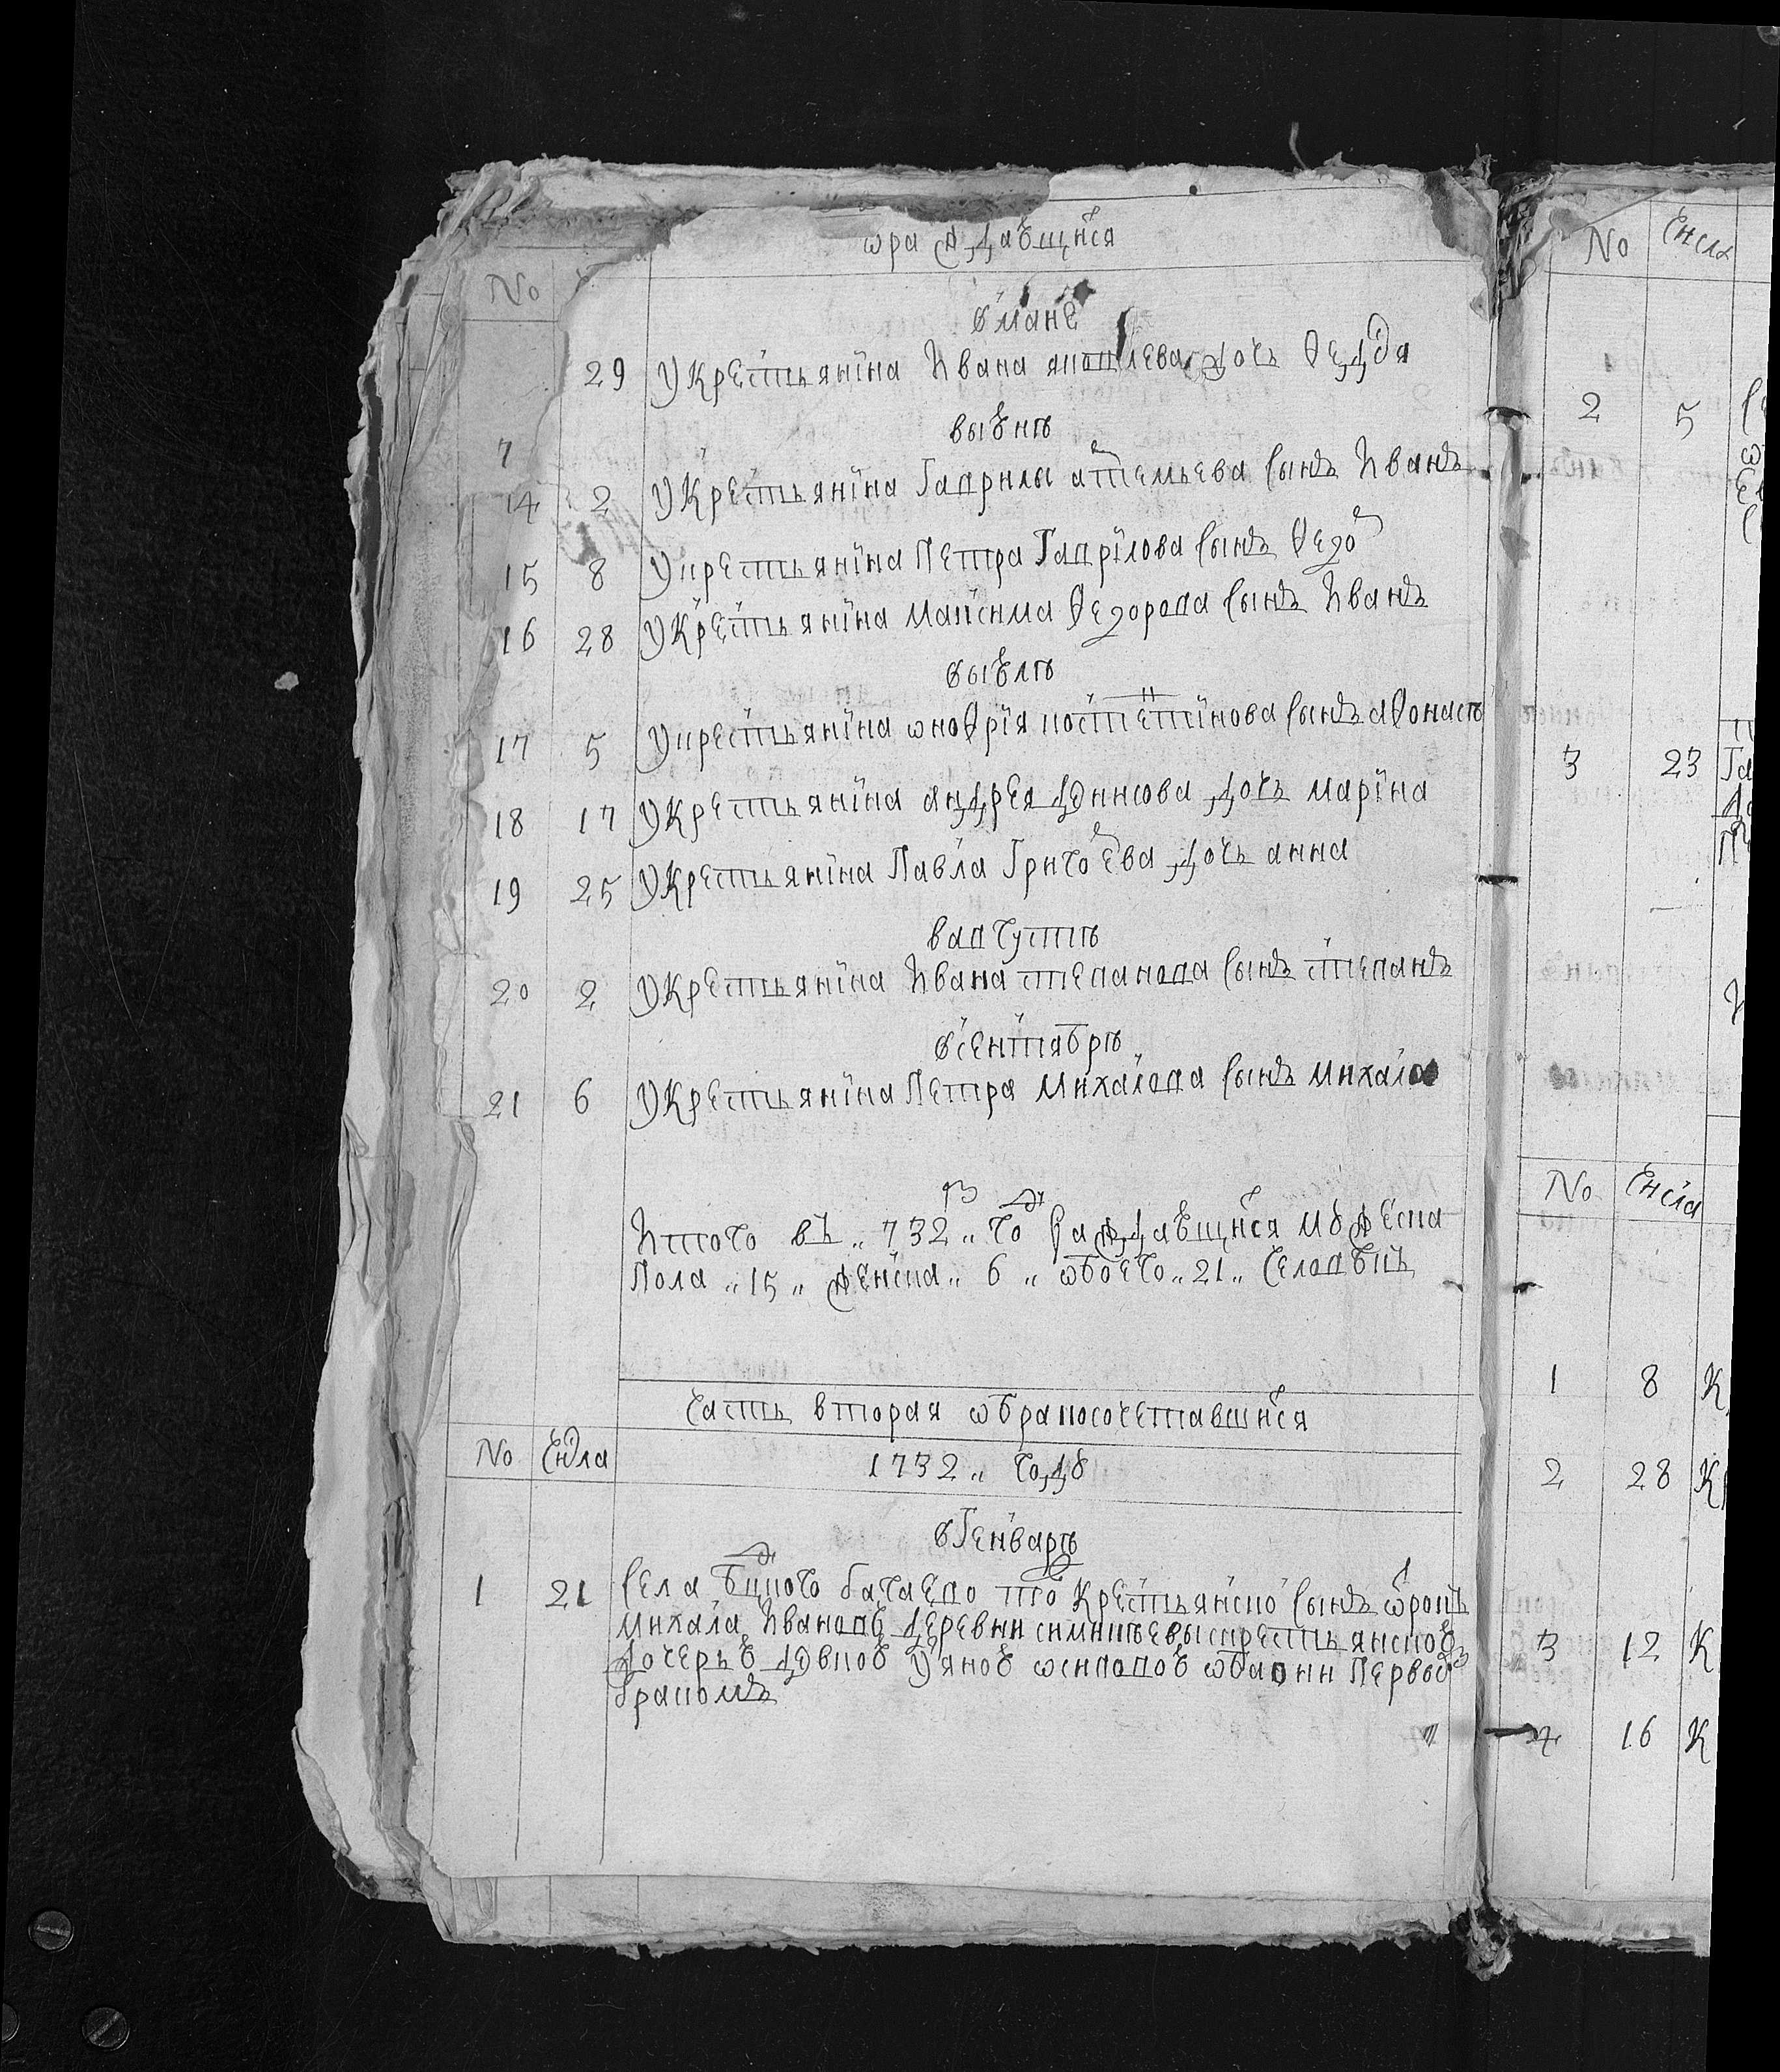 ѡраждавщися
No
в маиѣ
29 У крестьянина Ивана яковлева дочь Ѳедося
в июнѣ
7
14 2 У крестьянина Гаврилы артемьева сынъ Иванъ
15 8 У крестьянина Петра Гаврілова сынъ Ѳедоръ
16 28 У крестьянина маѯима Ѳедорова сынъ Иванъ
в июлѣ
17 5 У крестьянина ѡноѳрїя костентїнова сынъ аѳонасѣ
18 17 У крестьянина андрея дѣнисова дочь марїна
19 25 У крестьянина Павла Григорева дочь анна
в августѣ
20 2 У крестьянина Ивана степанова сынъ степанъ
в сентябрѣ
21 6 У крестьянина Петра Михаїлова сынъ михаїла
Итого въ „ 732 „ го раждавщихся мужеска
пола „ 15 „ женска „ 6 „ ѡбоего „ 21 „ человѣкъ
Часть вторая ѡбракосочетавшихся
No числа 1732 „ году
в Генварѣ
1 21 села крестьянско сынъ ѡтрокъ
михаїла Ивановъ деревни крестьянскою
дочерью дѣвкою ѡба первы
бракомъ
No Числа
2 5
3 23
No Числа
1 8 К
2 28 К
3 12 К
4 16 К